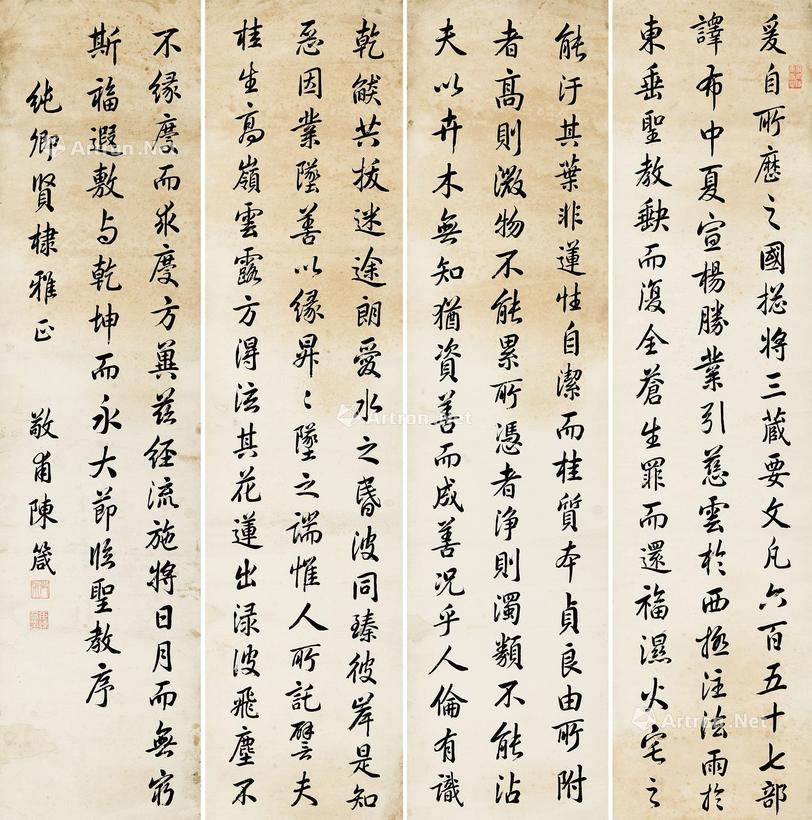 爰自所歷之國揔將三藏要文凡六百五十七部
譯布中夏宣楊勝業引慈雲於西極注法雨於
東垂聖教缺而復全蒼生罪而還福濕火宅之
能汙其葉非蓮性自潔而桂質本貞良由所附
者高則微物不能累所憑者淨則濁類不能沾
夫以卉木無知猶資善而成善況乎人倫有識
乾燄共拔迷途朗愛水之昬波同臻彼岸是知
惡因業墜善以緣昇〻墜之端惟人所託譬夫
桂生高嶺雲露方得泫其花蓮出淥波飛塵不
不緣慶而求慶方冀茲經流施將日月而無窮
斯福遐敷与乾坤而永大節臨聖教序
純卿賢棣雅正 敬甫陳箴
Artron.Net
Artron.Net
Artron.Net